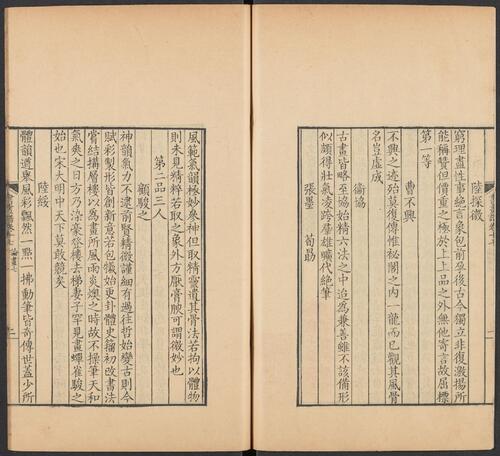 陸探微
窮理盡性事絶言象包前孕後古今獨立非復激揚所
能稱贊但價重之極於上上品之外無他寄言故屈標
第一等
曹不興
不興之迹殆莫復傳惟祕閣之内一龍而已觀其風骨
名豈虛成
衞協
古畫皆略至協始精六法之中迨爲兼善雖不該備形
似頗得壯氣凌跨羣雄曠代絶筆
張墨 荀勗
風範氣韻極妙叅神但取精靈遺其骨法若拘以體物
則未見精粹若取之象外方厭膏腴可謂微妙也
第二品三人
顧駿之
神韻氣力不逮前賢精微謹細有過往哲始變古則今
賦彩製形皆創新意若包犧始更卦體史籀初改書法
嘗結構層樓以爲畫所風雨炎燠之時故不操筆天和
氣爽之日方乃染毫登樓去梯妻子罕見畫蟬雀駿之
始也宋大明中天下莫敢競矣
陸綏
體韻遒舉風彩飄然一點一拂動筆皆奇傳世蓋少所